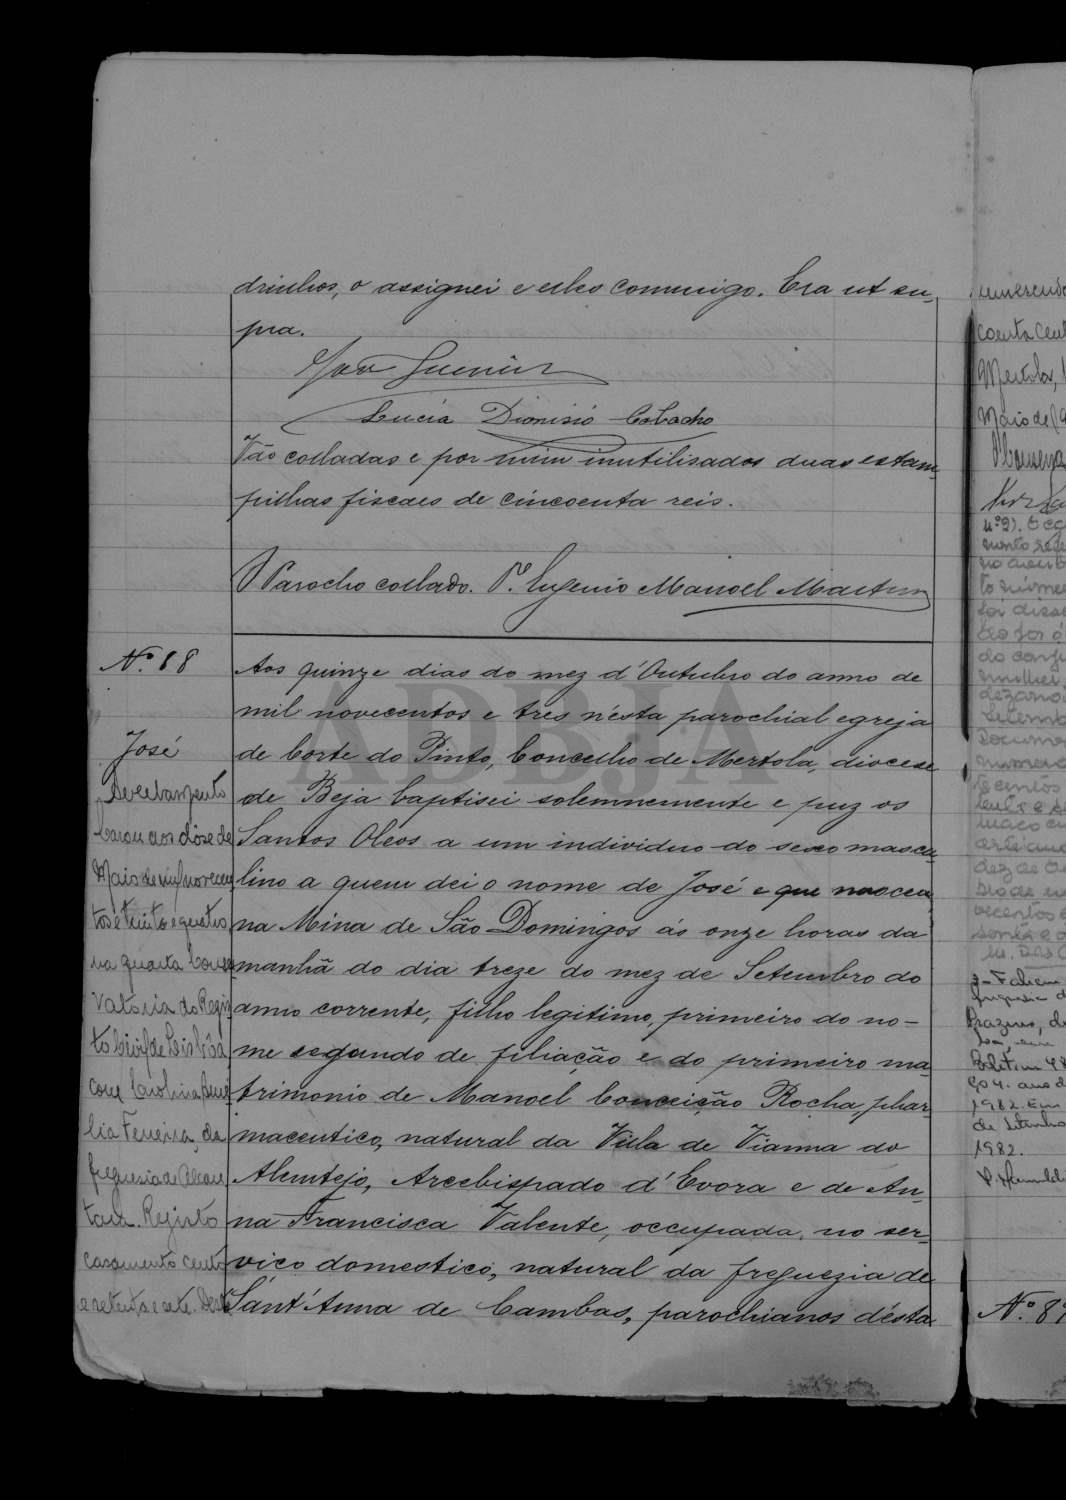 drinhos, o assignei e elles commigo. Era ut su-
pra.
Lucia Dionisio Cobacho
Vão colladas e por mim inutilisadas duas estam-
pilhas fiscaes de cincoenta reis.
O Parocho collado. P.e Eugenio Manoel Martins
Nº 88
José
Averbamento
Casou aos dôse de
Maio de mil novecen
tos e trinta e quatro
na quarta Conser
vatória do Regis
to Civil de Lisbôa
com Carolina Amé
lia Ferreira, da
freguesia de Alcan
tara. Registo
casamento cento
e setenta e sete.
Aos quinze dias do mez d'Outubro do anno de
mil novecentos e tres n'esta parochial egreja
de Corte do Pinto, Concelho de Mertola, diocese
de Beja baptisei solemnemente e puz os
Santos Oleos a um individuo do sexo mascu-
lino a quem dei o nome de José e que nasceu
na Mina de São Domingos ás onze horas da
manhã do dia treze do mez de Setembro do
anno corrente, filho legitimo, primeiro do no-
me segundo de filiação e do primeiro ma-
trimonio de Manoel Conceição Rocha, phar-
maceutico, natural da Villa de Vianna do
Alemtejo, Arcebispado d'Evora e de An-
na Francisca Valente, occupada no ser-
viço domestico, natural da freguezia de
Sant'Anna de Cambas, parochianos d'ésta
ADBJA
coenta cent
Mertola,
Maio de
nº 2).
do conju
mulher
Setemb
Docume
numero
1982. Em
de Setembro
1982.
Nº 89